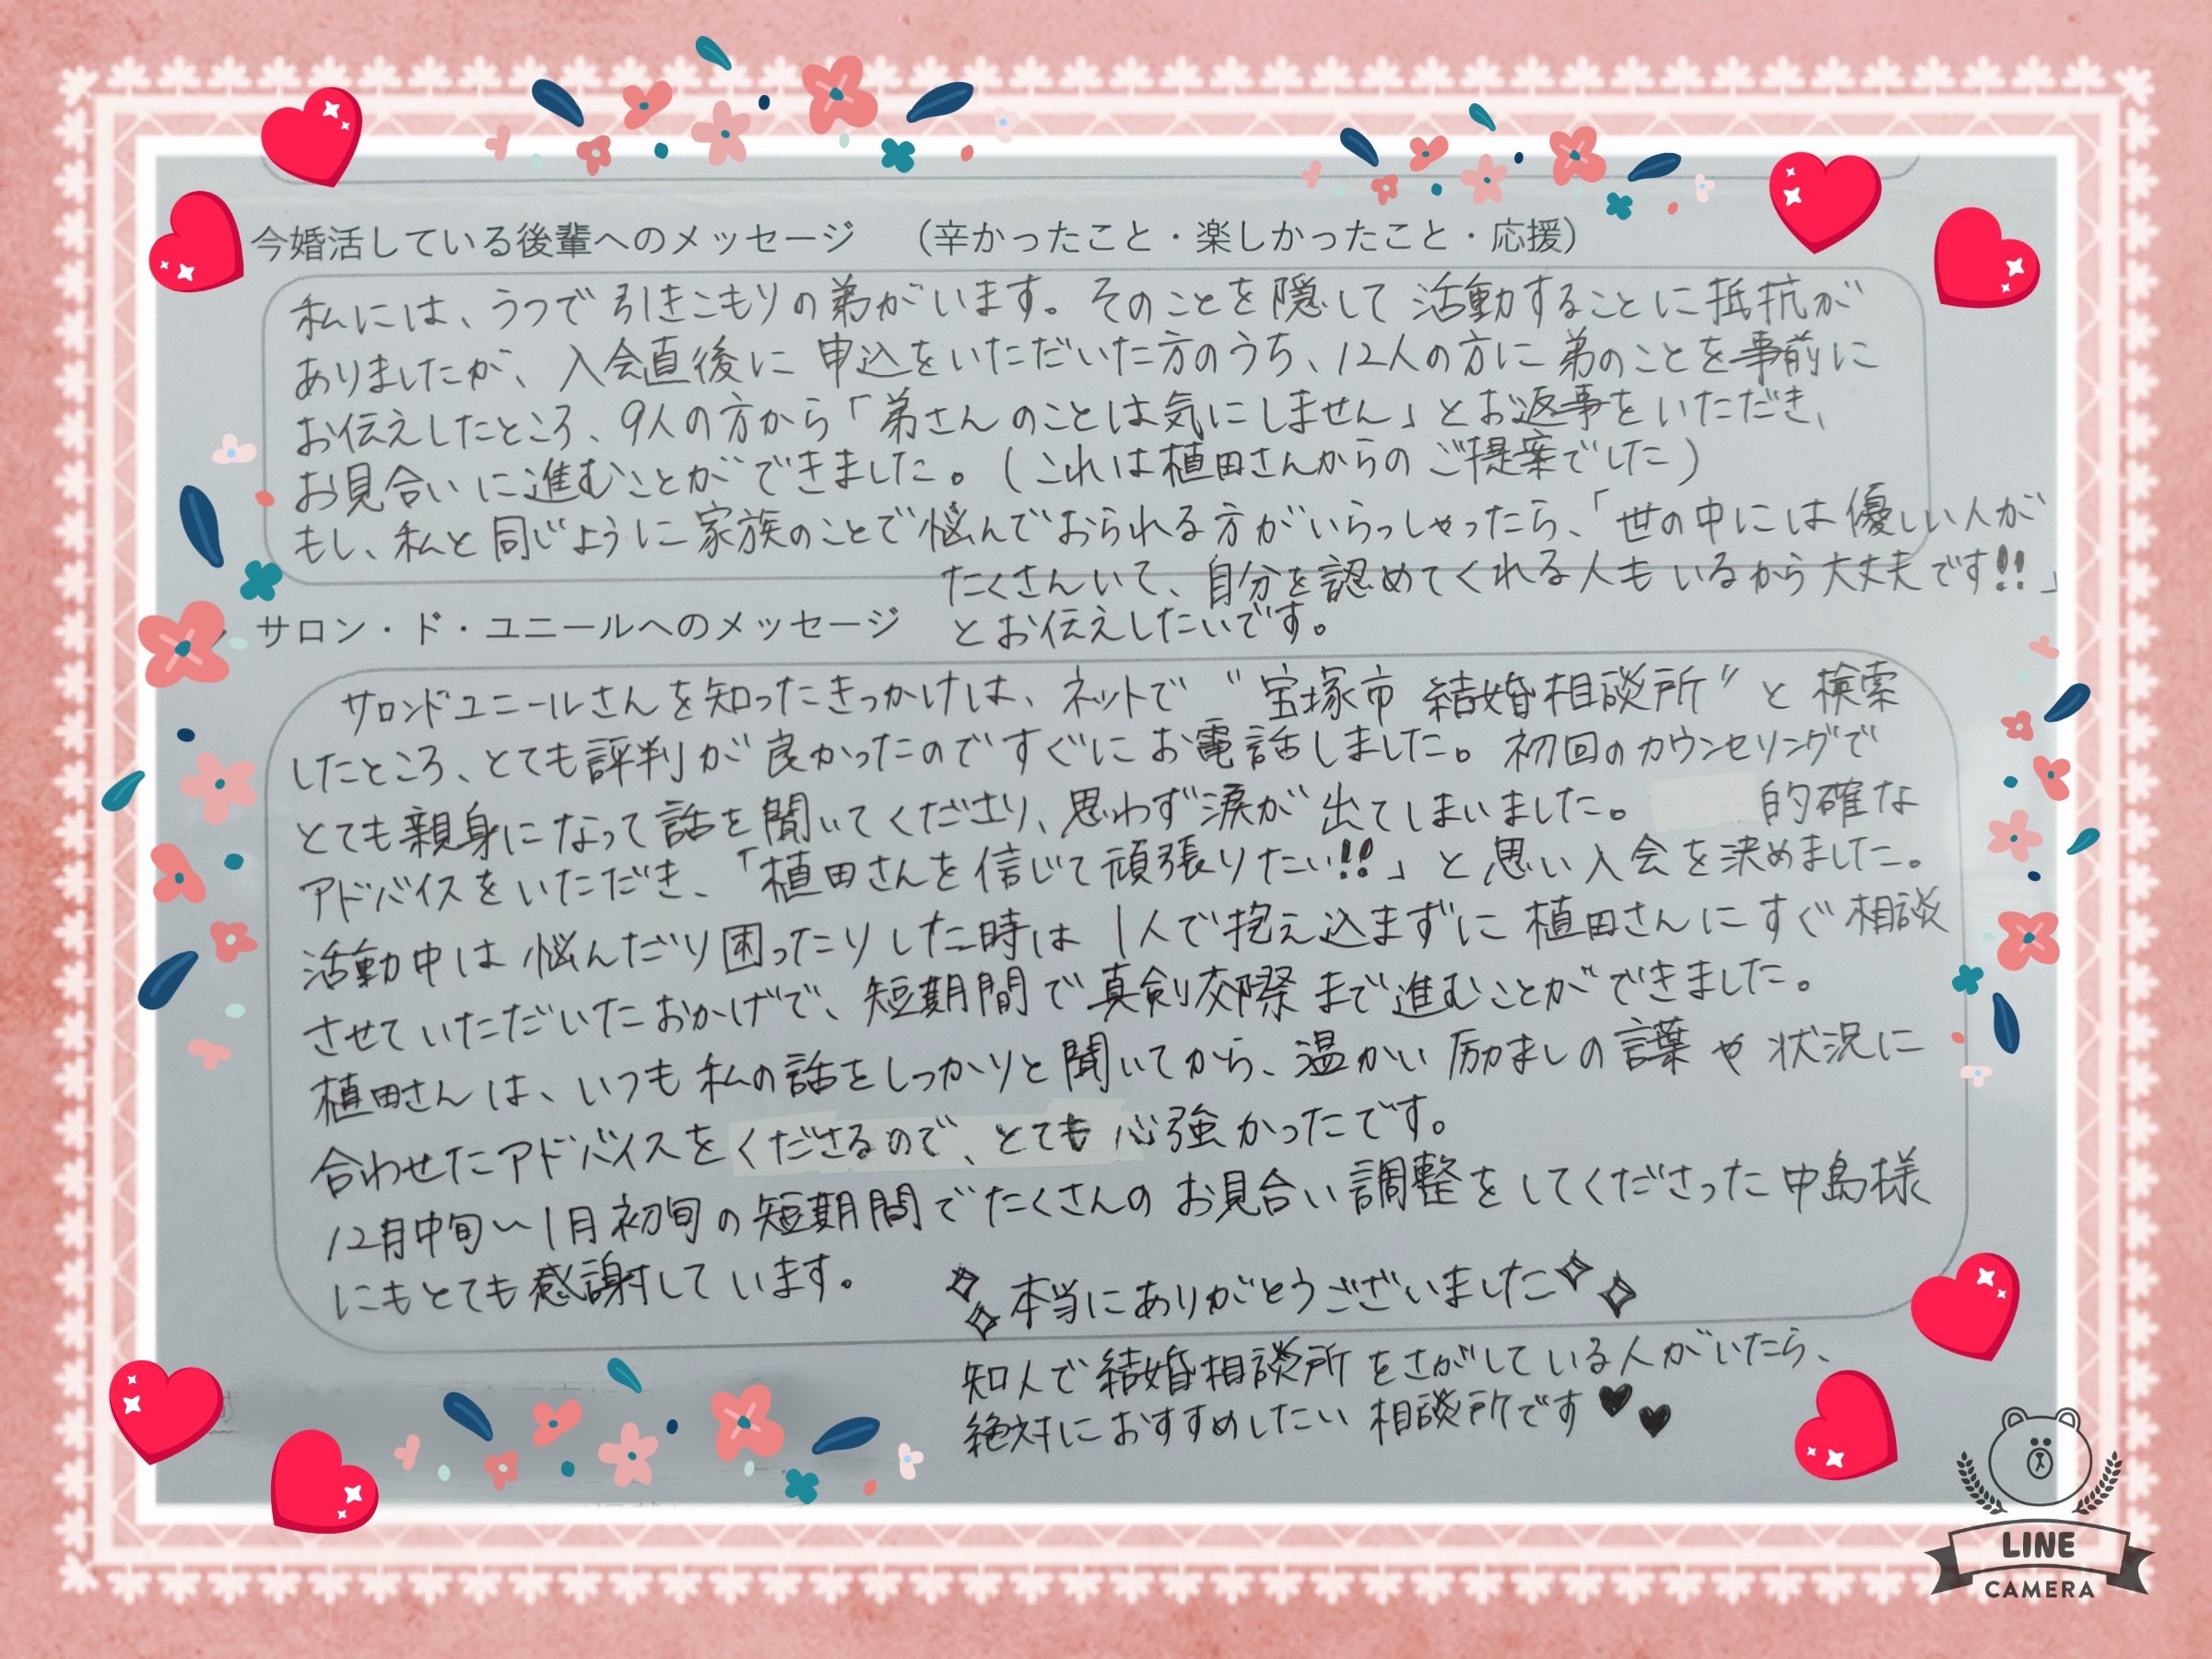 今婚活している後輩へのメッセージ　（辛かったこと・楽しかったこと・応援）
私には、うつで引きこもりの弟がいます。そのことを隠して活動することに抵抗が
ありましたが、入会直後に申込をいただいた方のうち、12人の方に弟のことを事前に
お伝えしたところ、9人の方から「弟さんのことは気にしません」とお返事をいただき、
お見合いに進むことができました。(これは植田さんからのご提案でした)
もし、私と同じように家族のことで悩んでおられる方がいらっしゃったら、「世の中には優しい人が
たくさんいて、自分を認めてくれる人もいるから大丈夫です!!」
とお伝えしたいです。
サロン・ド・ユニールへのメッセージ
サロンドユニールさんを知ったきっかけは、ネットで〝宝塚市 結婚相談所〟と検索
したところ、とても評判が良かったのですぐにお電話しました。初回のカウンセリングで
とても親身になって話を聞いてくださり、思わず涙が出てしまいました。 的確な
アドバイスをいただき、「植田さんを信じて頑張りたい!!」と思い入会を決めました。
活動中は悩んだり困ったりした時は1人で抱え込まずに植田さんにすぐ相談
させていただいたおかげで、短期間で真剣交際まで進むことができました。
植田さんは、いつも私の話をしっかりと聞いてから、温かい励ましの言葉や状況に
合わせたアドバイスをくださるので、とても心強かったです。
12月中旬〜1月初旬の短期間でたくさんのお見合い調整をしてくださった中島様
にもとても感謝しています。
本当にありがとうございました
知人で結婚相談所をさがしている人がいたら、
絶対におすすめしたい相談所です♥♥
LINE
CAMERA